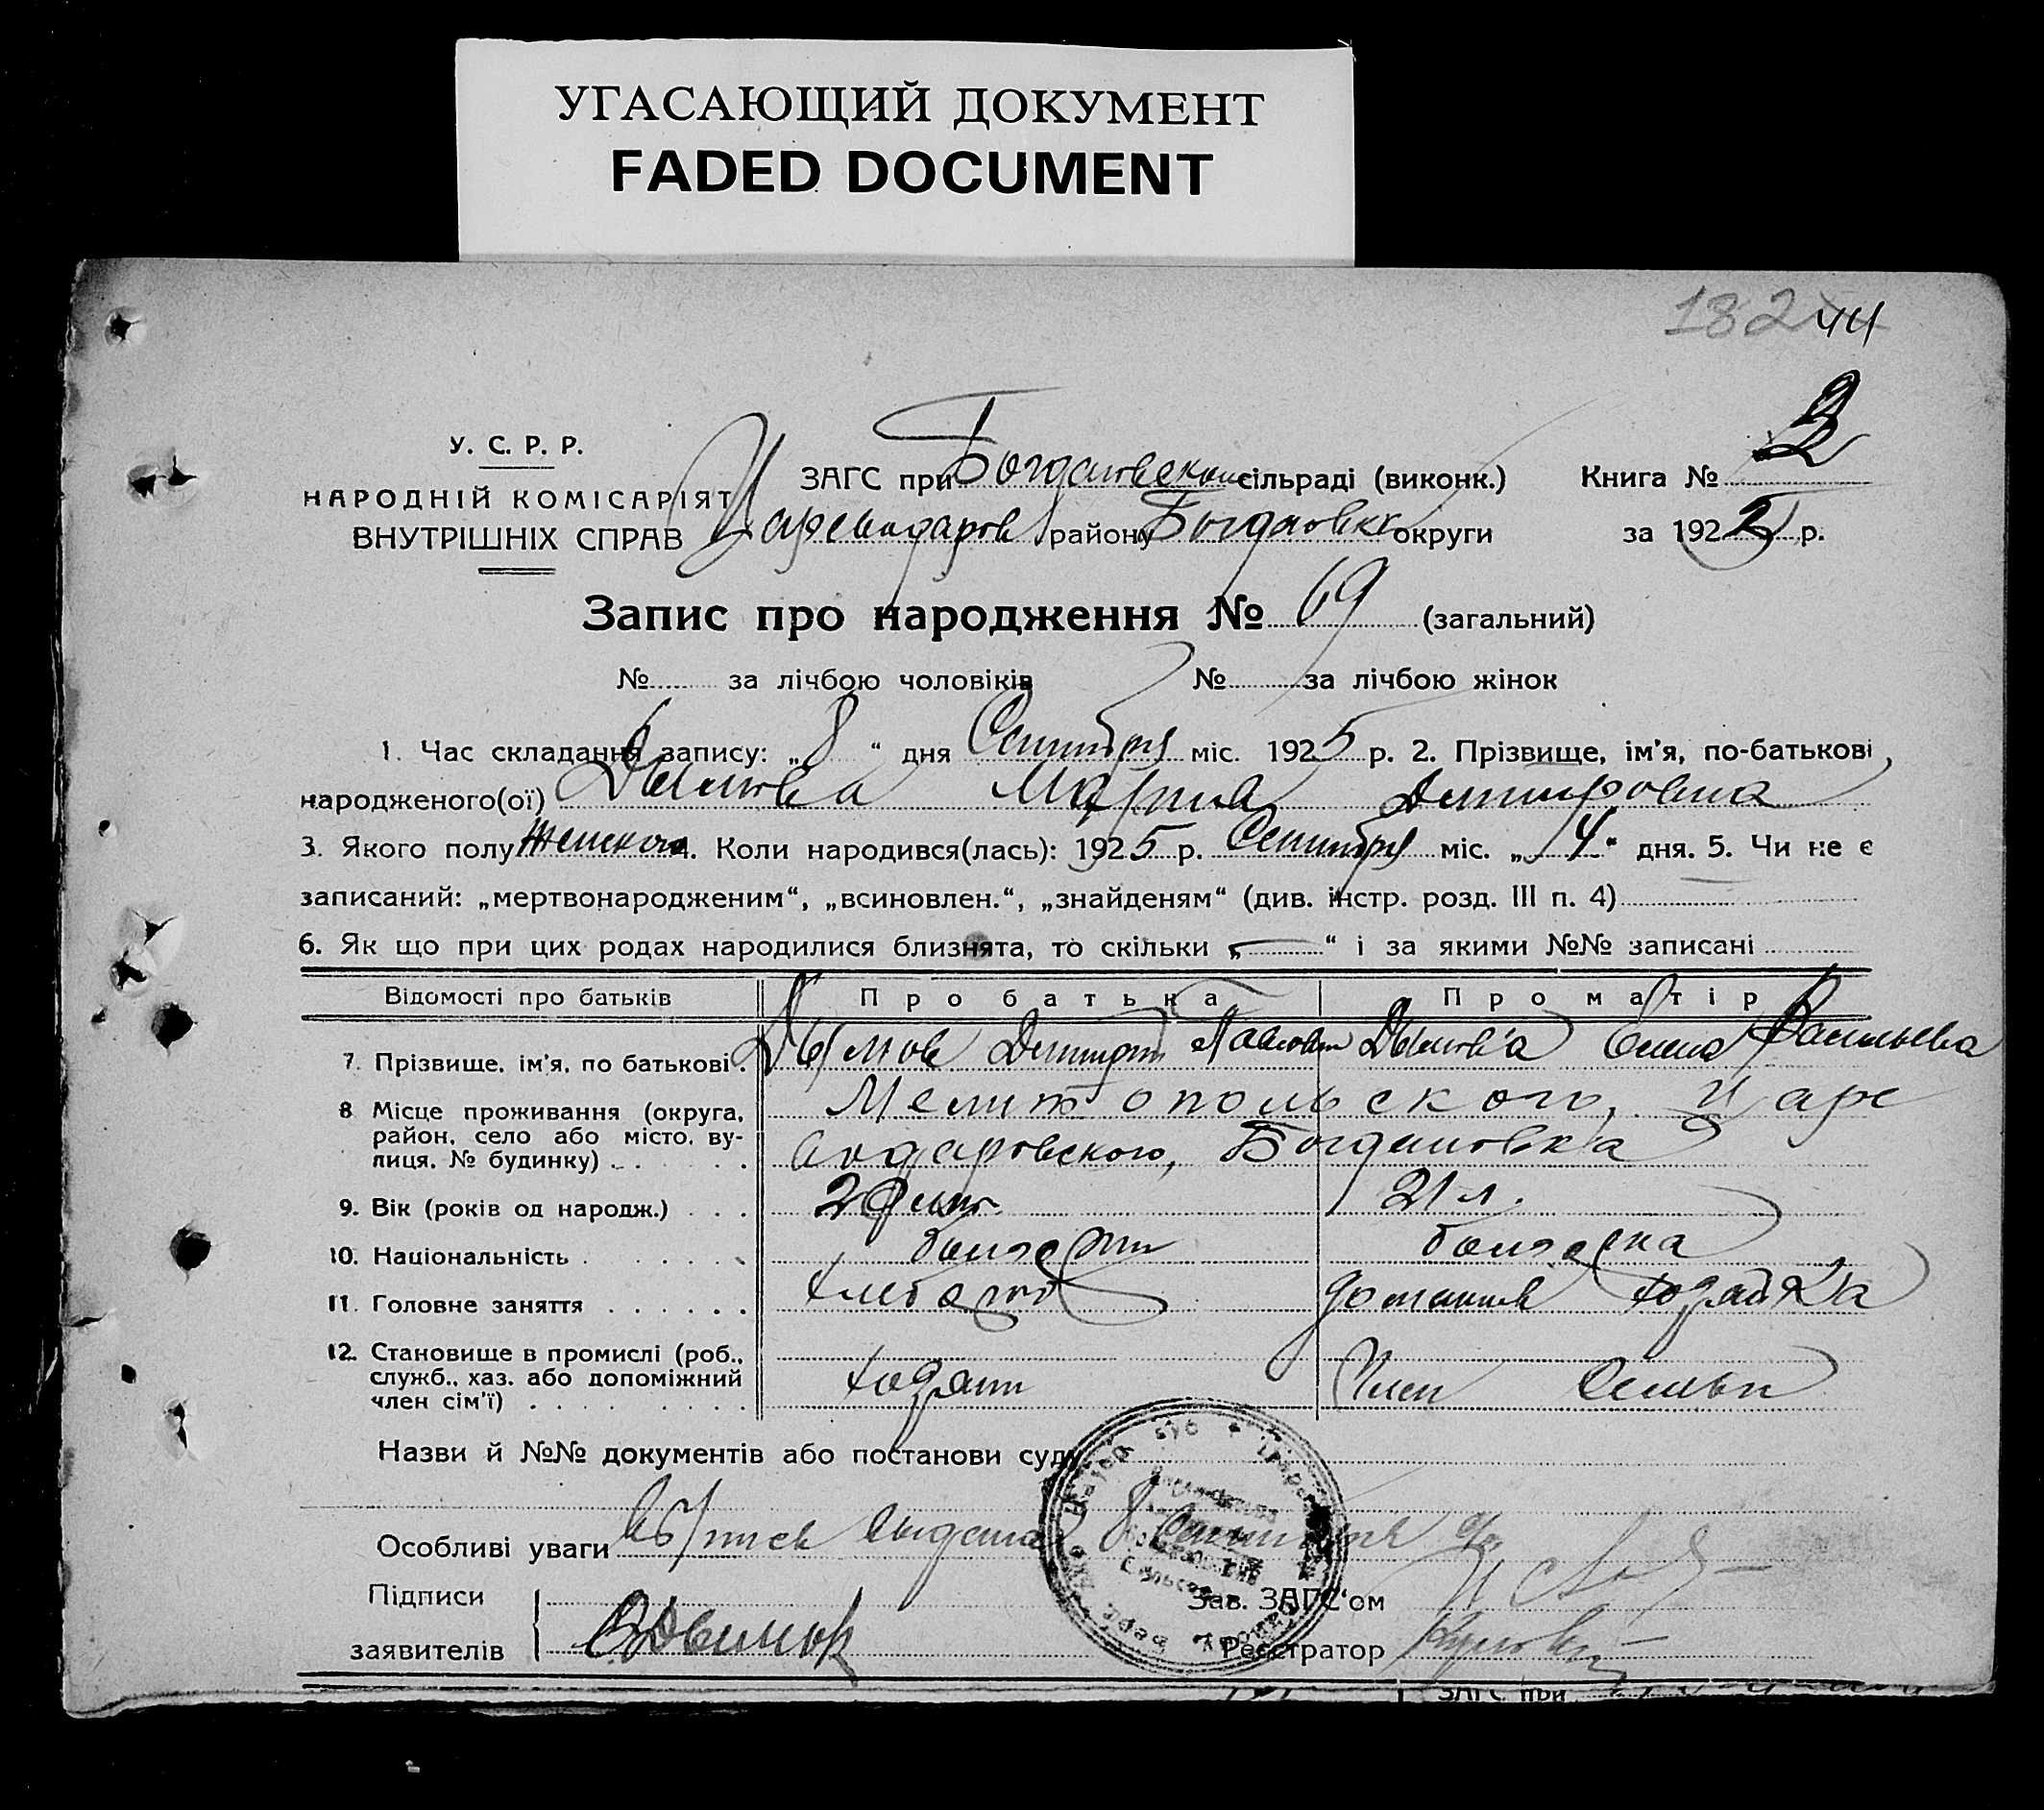 УГАСАЮЩИЙ ДОКУМЕНТ
FADED DOCUMENT
182 44
У. С. Р. Р.
НАРОДНІЙ КОМІСАРІЯТ
ВНУТРІШНІХ СПРАВ
ЗАГС при Богдановском сільраді (виконк.) Книга № 2
району Богдановка округи за 1925 р.
Запис про народження № 69 (загальний)
№ за лічбою чоловіків № за лічбою жінок
1. Час складання запису: „8“ дня Сентября міс. 1925 р. 2. Прізвище, ім'я, по-батькові
народженого(ої) Дымова Мария Дмитровна
3. Якого полу Женского 4. Коли народився(лась): 1925 р. Сентября міс. „4“ дня. 5. Чи не є
записаний: „мертвонародженим“, „всиновлен.“, „знайденям“ (див. інстр. розд. III п. 4)
6. Як що при цих родах народилися близнята, то скільки „—“ і за якими №№ записані
Відомості про батьків Про батька Про матір
7. Прізвище, ім'я, по батькові. Дымов Дмитрий Павлович Дымова Елена Васильева
8 Місце проживання (округа, Мелитопольского, Царе
район, село або місто, ву-
лиця, № будинку) водаровского, Богдановка
9. Вік (років од народж.) 21 л.
10. Національність болгарин болгарка
11. Головне заняття хлебороб домашняя хозяйка
12. Становище в промислі (роб.,
служб., хаз. або допоміжний хозяин Член Семьи
член сім'ї)
Назви й №№ документів або постанови суду
Особливі уваги выдана 8 Сентября
Підписи Зав. ЗАГС'ом
заявителів Реєстратор
ЗАГС при